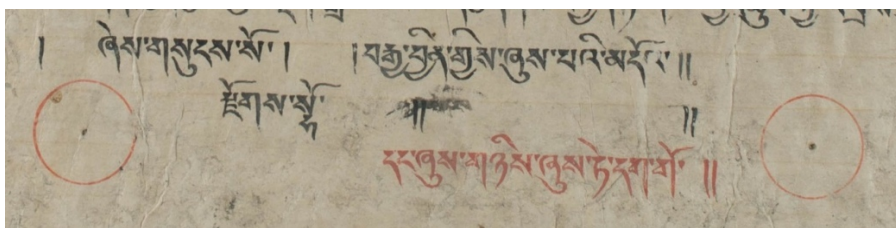 ། ཞེས་གསུངས་སོ་ ། །བརྒྱ་བྱིན་གྱིས་ཞུས་པའི་མདོ་
རྫོགས་སྷོ་ །། །།
དང་ཞུས་གཉིས་ཞུས་ཏེ་དག་གོ་ །།